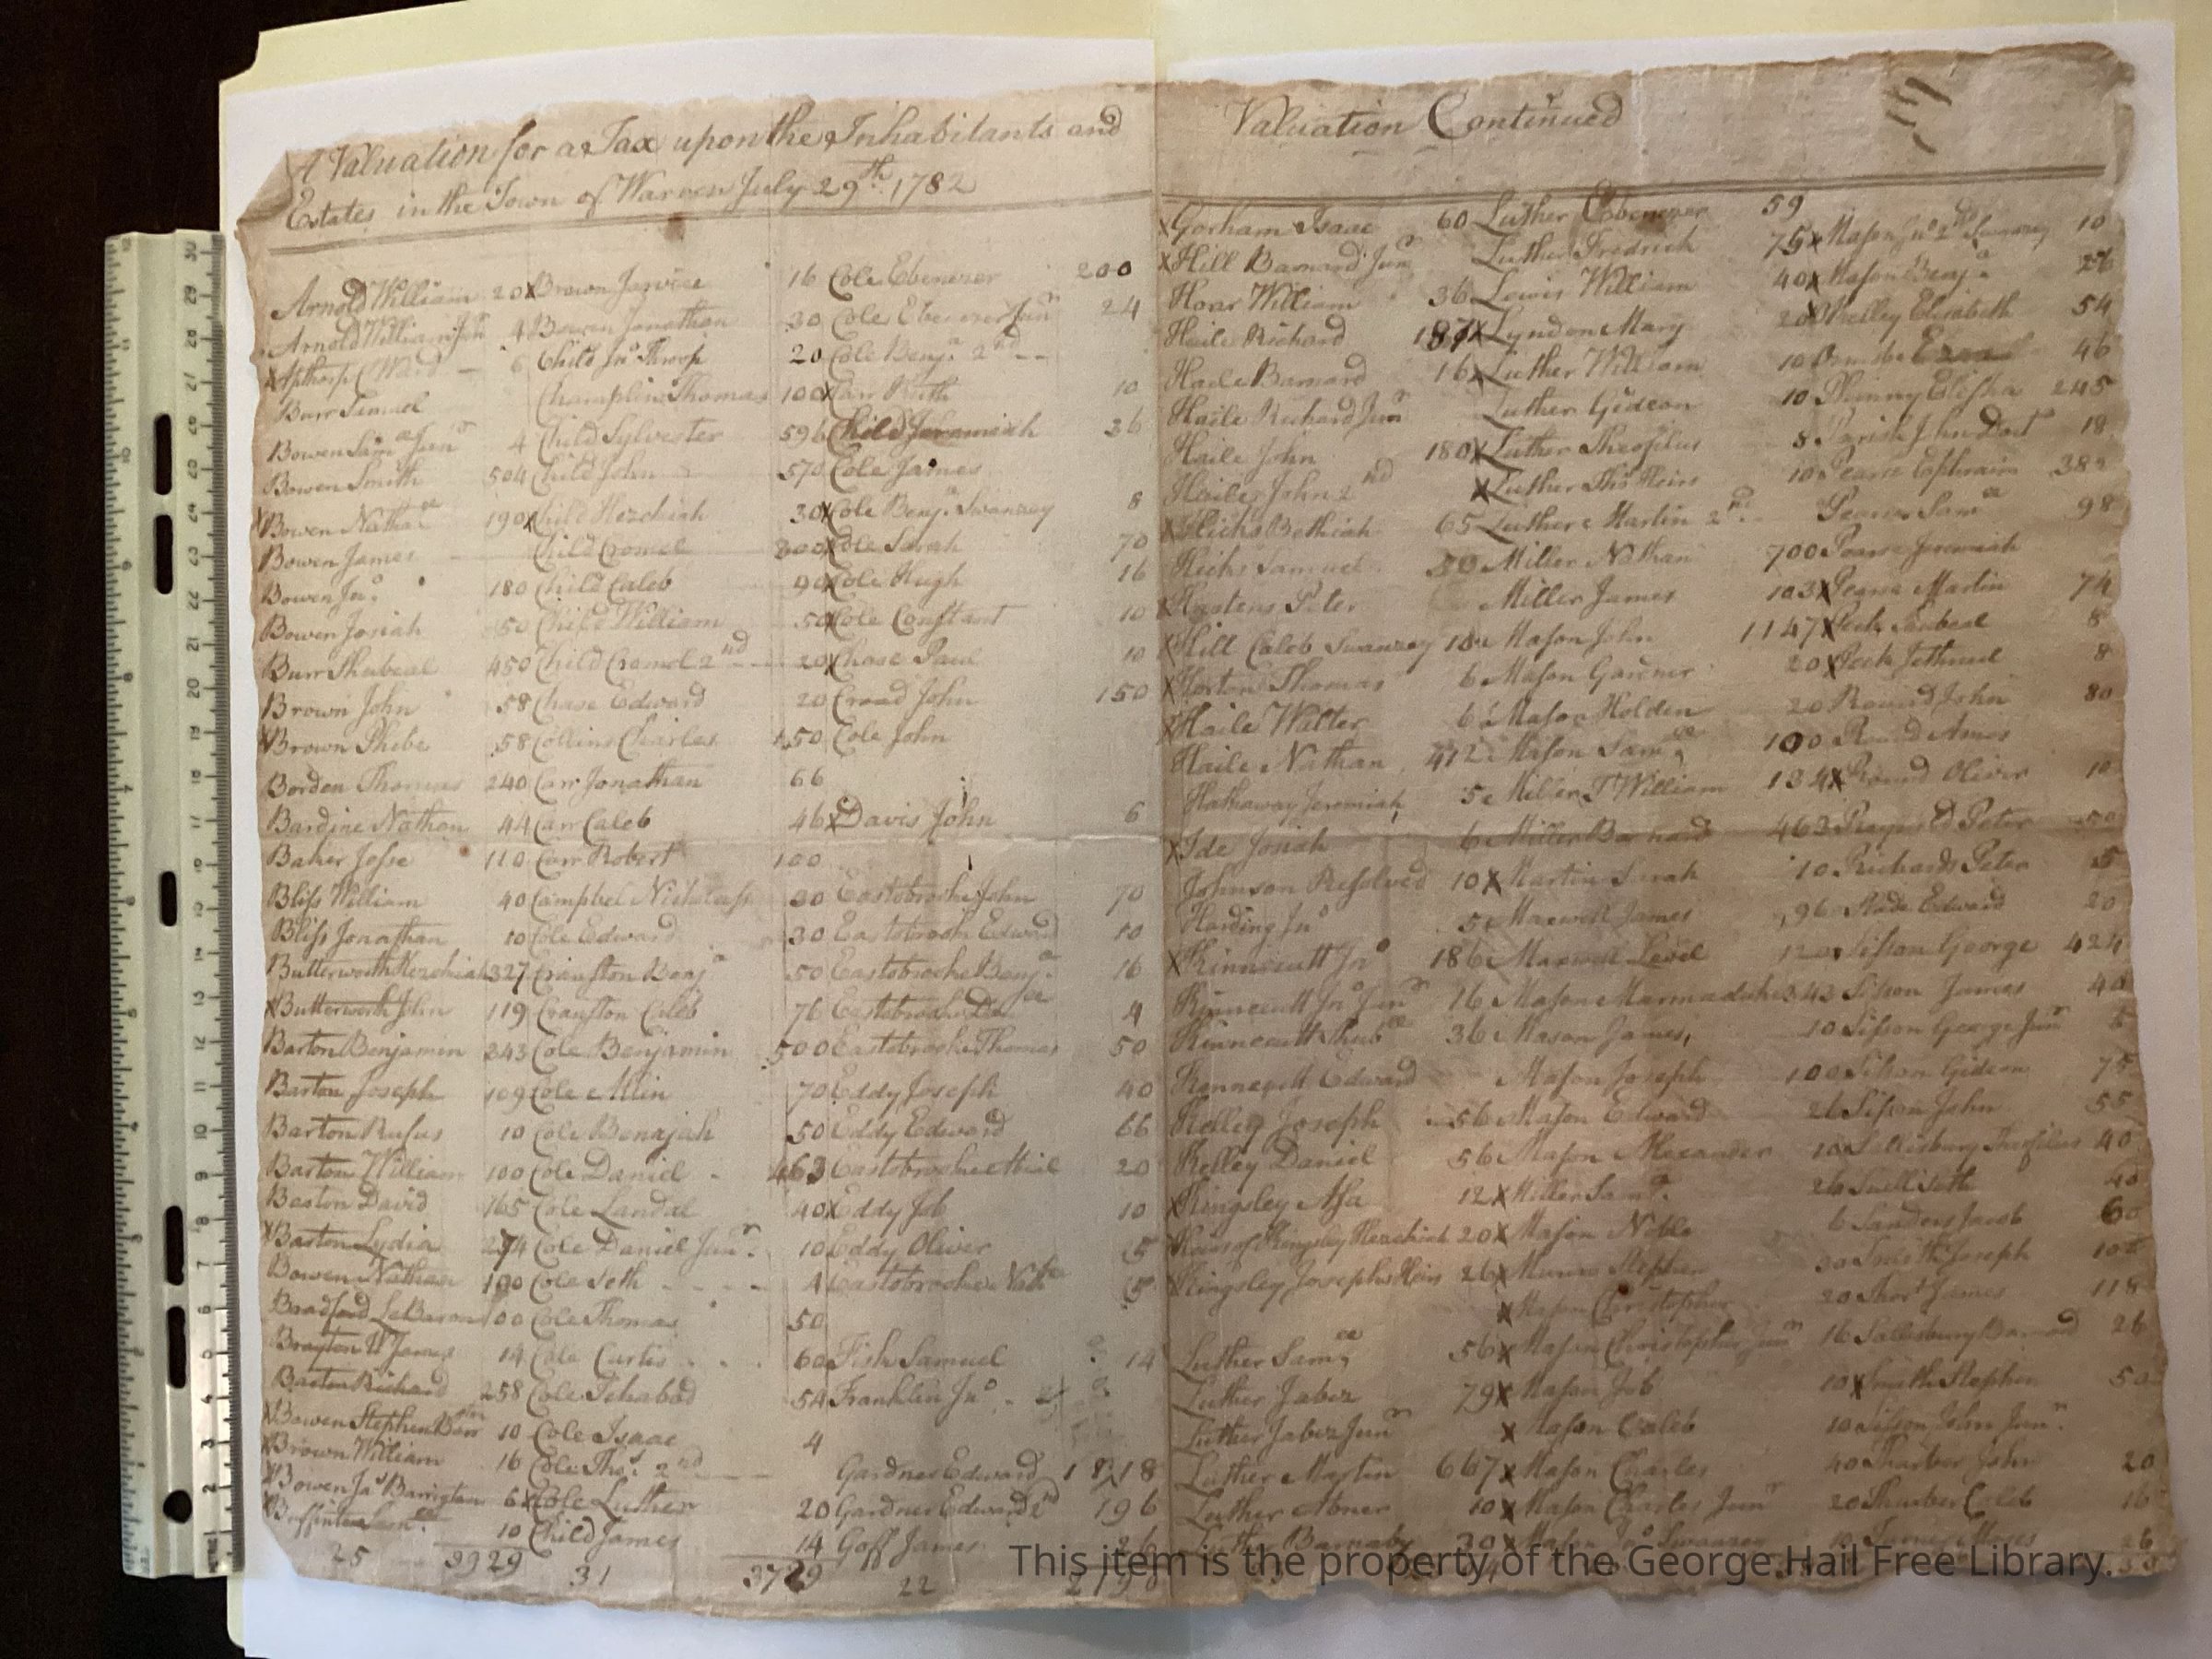 A Valuation for a Tax upon the Inhabitants and
Estates in the Town of Warren July 29th. 1782
Arnold William 20
Arnold William Jun 4
6
Barr Samuel
Bowen Samll Junr 4
Bowen Smith 504
X Bowen Nathan 190
Bowen James
Bowen Jno. 180
Bowen Josiah 50
Burr Shubeal 450
Brown John 58
X Brown Phebe 58
Borden Thomas 240
Bardine Nathan 44
Baker Jesse 110
Bliss William 40
Bliss Jonathan 10
Butterworth Hezekiah 327
X Butterworth John 119
Barton Benjamin 243
Barton Joseph 109
Barton Rufus 10
Barton William 100
Barton David 165
X Barton Lydia 274
Bowen Nathan 190
Bradford LeBaron 100
Brayton Wm James 14
Barton Richard 258
X Bowen Stephen 10
X Brown William 16
X Bowen Jas Barrington 6
Buffinton Saml 10
25 3929
X Brown Jarvice 16
Bowen Jonathan 30
Child Jno Throop 20
Champlin Thomas 100
Child Sylvester 596
Child John 570
X Child Hezekiah 30
Child Cromel 300
Child Caleb 90
Child William 50
Child Cromel 2nd 20
Chase Edward 20
Collins Charles 150
Carr Jonathan 66
Carr Caleb 46
Carr Robert 100
Campbel Nicholas 30
Cole Edward 30
Cranston Benja 50
Cranston Caleb 76
Cole Benjamin 500
Cole Allin 70
Cole Benajah 50
Cole Daniel 463
Cole Landal 40
Cole Daniel Junr. 10
Cole Seth 4
Cole Thomas 50
Cole Curtis 60
Cole Ichabod 54
Cole Isaac 4
Cole Thos. 2nd
X Cole Luther 20
Child James 14
31 3729
Cole Ebenezer 200
Cole Ebenezer Junr 24
Cole Benja. 2nd
X Carr Ruth 10
Child Jeremiah 36
Cole James
X Cole Benja. Swanzey 8
X Cole Sarah 70
X Cole Hugh 16
X Cole Constant 10
X Chase Paul 10
Croad John 150
Cole John
X Davis John 6
Eastobrooke John 70
Eastobrook Edward 10
Eastobrooke Benja. 16
Eastobrooke 4
Eastobrooke Thomas 50
Eddy Joseph 40
Eddy Edward 66
Eastobrooke Abial 20
X Eddy Job 10
Eddy Oliver 5
Eastobrooke 5
Fish Samuel 14
Franklin Jno
Gardner Edward 18
Gardner Edward 2d 196
Goff James 26
22
Valuation Continued
X Gorham Isaac 60
X Hill Barnard Junr
Hoar William 36
Haile Richard 187
Haile Barnard 16
Haile Richard Junr
Haile John 180
Haile John 2nd
X Hicks Bethiah 65
Hicks Samuel 50
X Peter
X Hill Caleb Swanzey 10
X Horton Thomas 6
X Haile Walter 6
Haile Nathan 412
Hathaway Jeremiah 5
X Ide Josiah 6
Johnson Resolved 10
Harding Jno 5
X Kinnicutt Jno 186
Kinnecutt Jno Junr 16
Kinnecutt Shub 36
Kennecutt Edward
Kelley Joseph 56
Kelley Daniel 56
X Kingsley Asa 12
X Heirs of Kingsley Hezekiah 20
X Kingsley Josephs Heirs 26
Luther Samll 56
Luther Jabez 79
Luther Jabez Junr
Luther Martin 667
Luther Abner 10
Luther Barnaby 30
Luther Ebenezer 59
Luther Fredrick 75
Lewis William 40
X Lyndon Mary 20
X Luther William 10
Luther Gideon 10
X Luther Theofilus 8
X Luther Thos Heirs 10
Luther Martin 2nd
Miller Nathan 700
Miller James 103
Mason John 1147
Mason Gardner 20
Mason Holden 20
Mason Samll 100
Miller William 134
Miller Barnard 463
X Martin Sarah 10
Maxwell James 96
Maxwell Level 120
Mason Marmaduke 343
Mason James 10
Mason Joseph 100
Mason Edward 26
Mason Alexander 10
X Miller Saml. 26
X Mason Noble 6
X Munro Stephen 30
X Mason Christopher 20
X Mason Christopher Junr 16
X Mason Job 10
X Mason Caleb 10
X Mason Charles 40
X Mason Charles Junr 20
X Mason Jno Swanzey 10
X Mason Jno 2nd Swanzey 10
X Mason Benja 26
X Kelley Elisabeth 54
46
Phinny Elisha 245
Parish John 18
Pearse Ephraim 382
Pearse Samll 98
Pearse Jeremiah
X Pearse Martin 74
X Peck Shubeal 8
X Peck 8
Round John 80
Round Amos
X Round Oliver 10
Peter 50
Richards Peter 5
Slade Edward 20
Sisson George 424
Sisson James 40
Sisson George Junr
Sisson Gideon 75
Sisson John 55
Sallisbury Theofilus 40
Snell Seth 40
Sanders Jacob 60
Smith Joseph
Short James 118
Salisbury Barnard 26
X Smith Stephen 50
Sisson John Junr.
Thurber John 20
Thurber Caleb 16
Turner Moses 26
This item is the property of the George Hail Free Library.